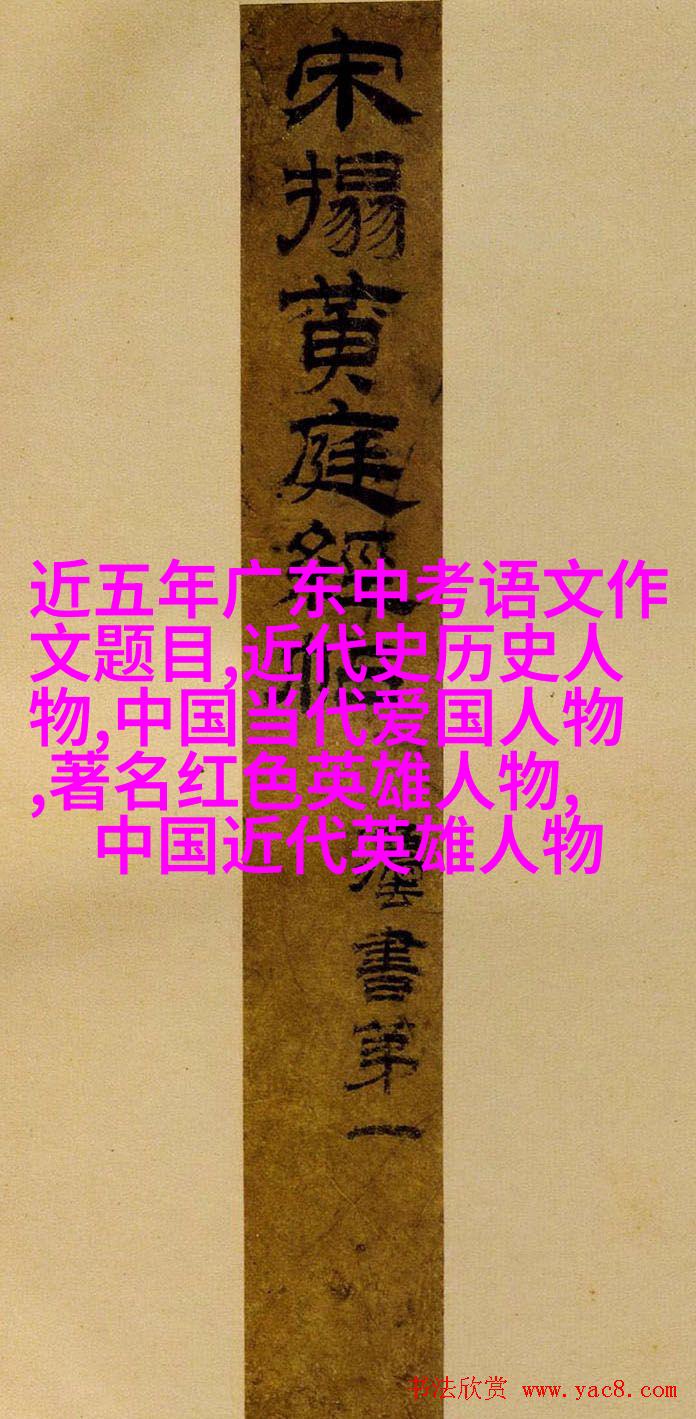 宋搨黄庭經
書第一
近五年广东中考语文作
文题目,近代史历史人
物,中国当代爱国人物
,著名红色英雄人物,
中国近代英雄人物
书法欣赏 www.yac8.com